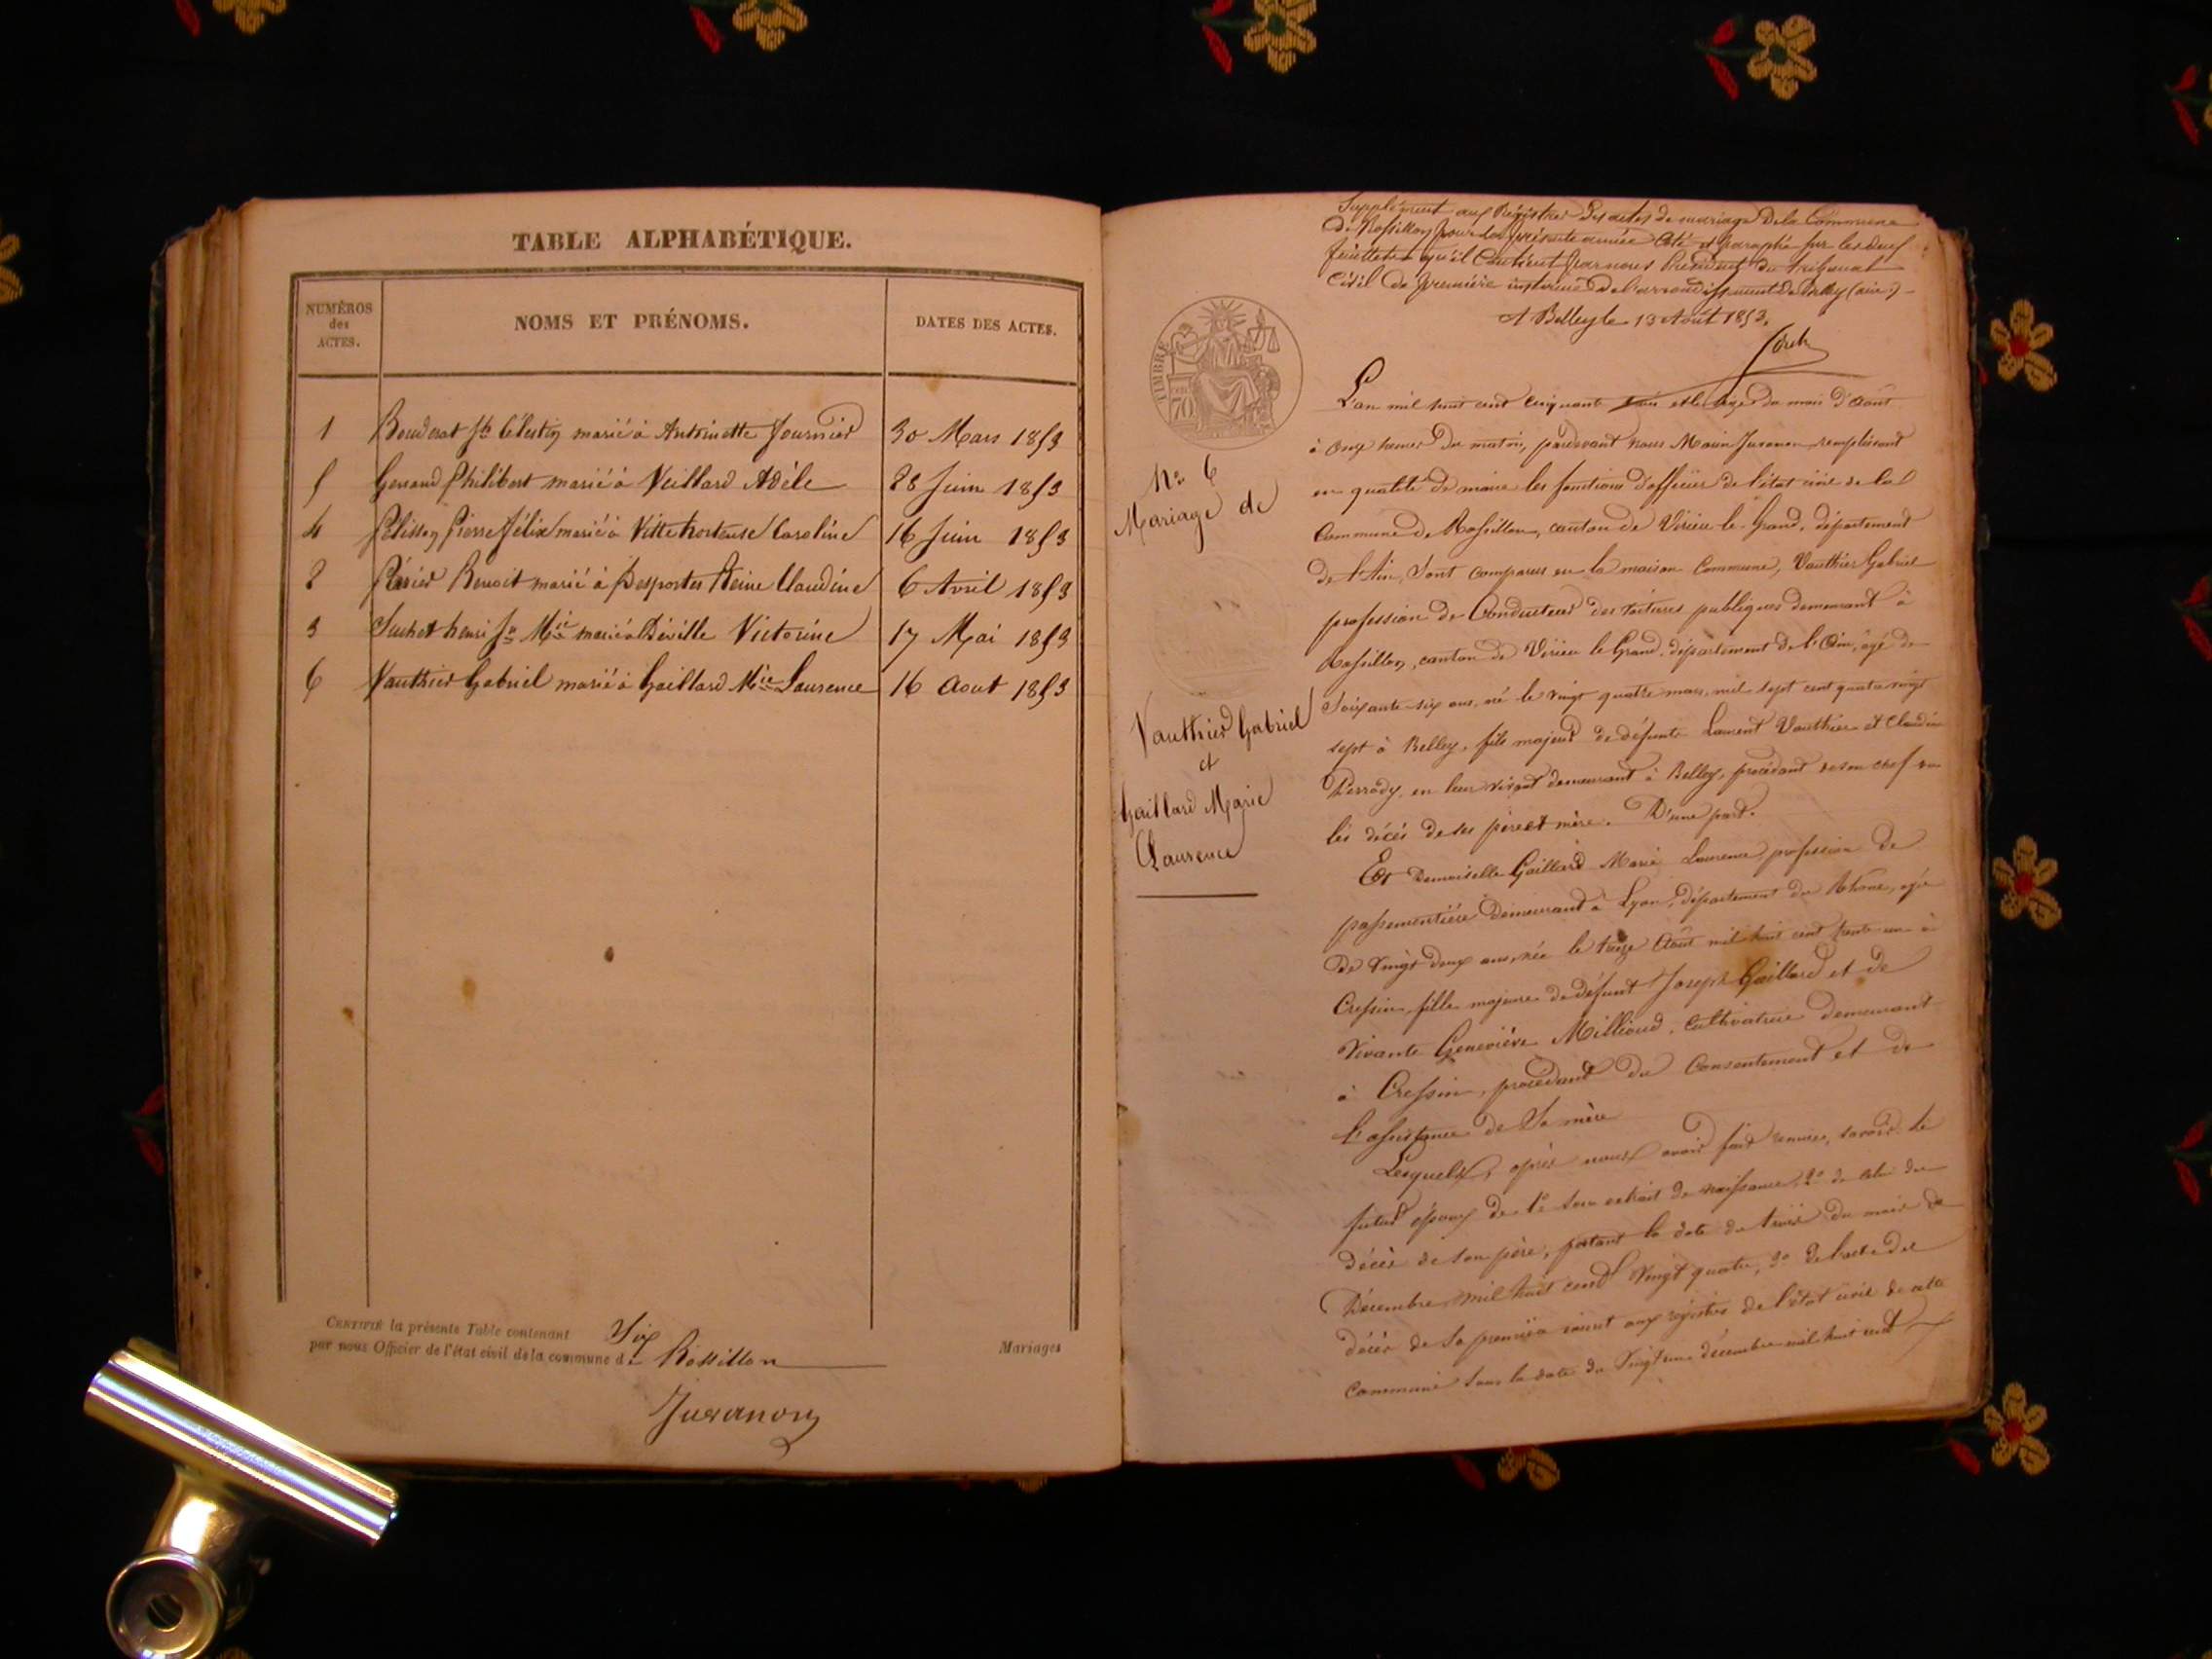 TABLE ALPHABÉTIQUE.
NUMÉROS des ACTES. NOMS ET PRÉNOMS. DATES DES ACTES.
1 Jh Célestin marié à Antoinette Fournier 30 Mars 1853
5 Genand Philibert marié à Veillard Adèle 28 Juin 1853
4 Pélisson Pierre Félix marié à Vitte hortense Caroline 16 Juin 1853
2 Périer Benoit marié à Desportes Reine Claudine 6 Avril 1853
3 Suchet henri Mie marié à Déville Victorine 17 Mai 1853
6 Vauthier Gabriel marié à Gaillard Mie Laurence 16 Aout 1853
CERTIFIÉ la présente Table contenant Six
par nous Officier de l'état civil de la commune de Rossillon
Mariages
Juvanon
Supplément aux Régistres des actes de mariage de la Commune
de Rossillon pour la présente année Coté et paraphé sur les deux
feuillets qu'il Contient par nous Président du tribunal
Civil de première instance de l'arrondissement de Belley (ain)
A Belley le 13 Août 1853.
TIMBRE
70
No 6
Mariage de
Vauthier Gabriel
et
Gaillard Marie
Laurence
L'an mil huit cent cinquante trois et le seize du mois d'Aout
à onze heures du matin, pardevant nous Marin Juvanon remplissant
en qualité de maire les fonctions d'officier de l'état civil de la
Commune de Rossillon, canton de Virieu le Grand, département
de l'Ain, Sont comparus en la maison Commune, Vauthier Gabriel
profession de Conducteur des voitures publiques demeurant à
Rossillon, canton de Virieu le Grand, département de l'Ain, agé de
Soixante six ans, né le vingt quatre mars mil sept cent quatre vingt
sept à Belley, fils majeur de défunts Laurent Vauthier et Claudine
Perrody, en leur vivant demeurant à Belley, procédant de son chef vu
les décès de ses père et mère. D'une part.
Et Demoiselle Gaillard Marie Laurence, profession de
passementière demeurant à Lyon, département du Rhone, agée
de vingt deux ans, née le treize Août mil huit cent trente un à
Cressin, fille majeure de défunt Joseph Gaillard et de
Vivante Geneviève Millioud, cultivatrice demeurant
à Cressin, procédant du Consentement et de
l'assistance de Sa mère
Lesquels, après nous avoir fait remise, savoir le
futur époux de 1o Son extrait de naissance, 2o de celui du
décès de son père, portant la date du trois du mois de
Décembre mil huit cent vingt quatre, 3o de l'acte de
décès de Sa première inscrit aux registres de l'état civil de cette
commune sous la date du vingt un décembre mil huit cent